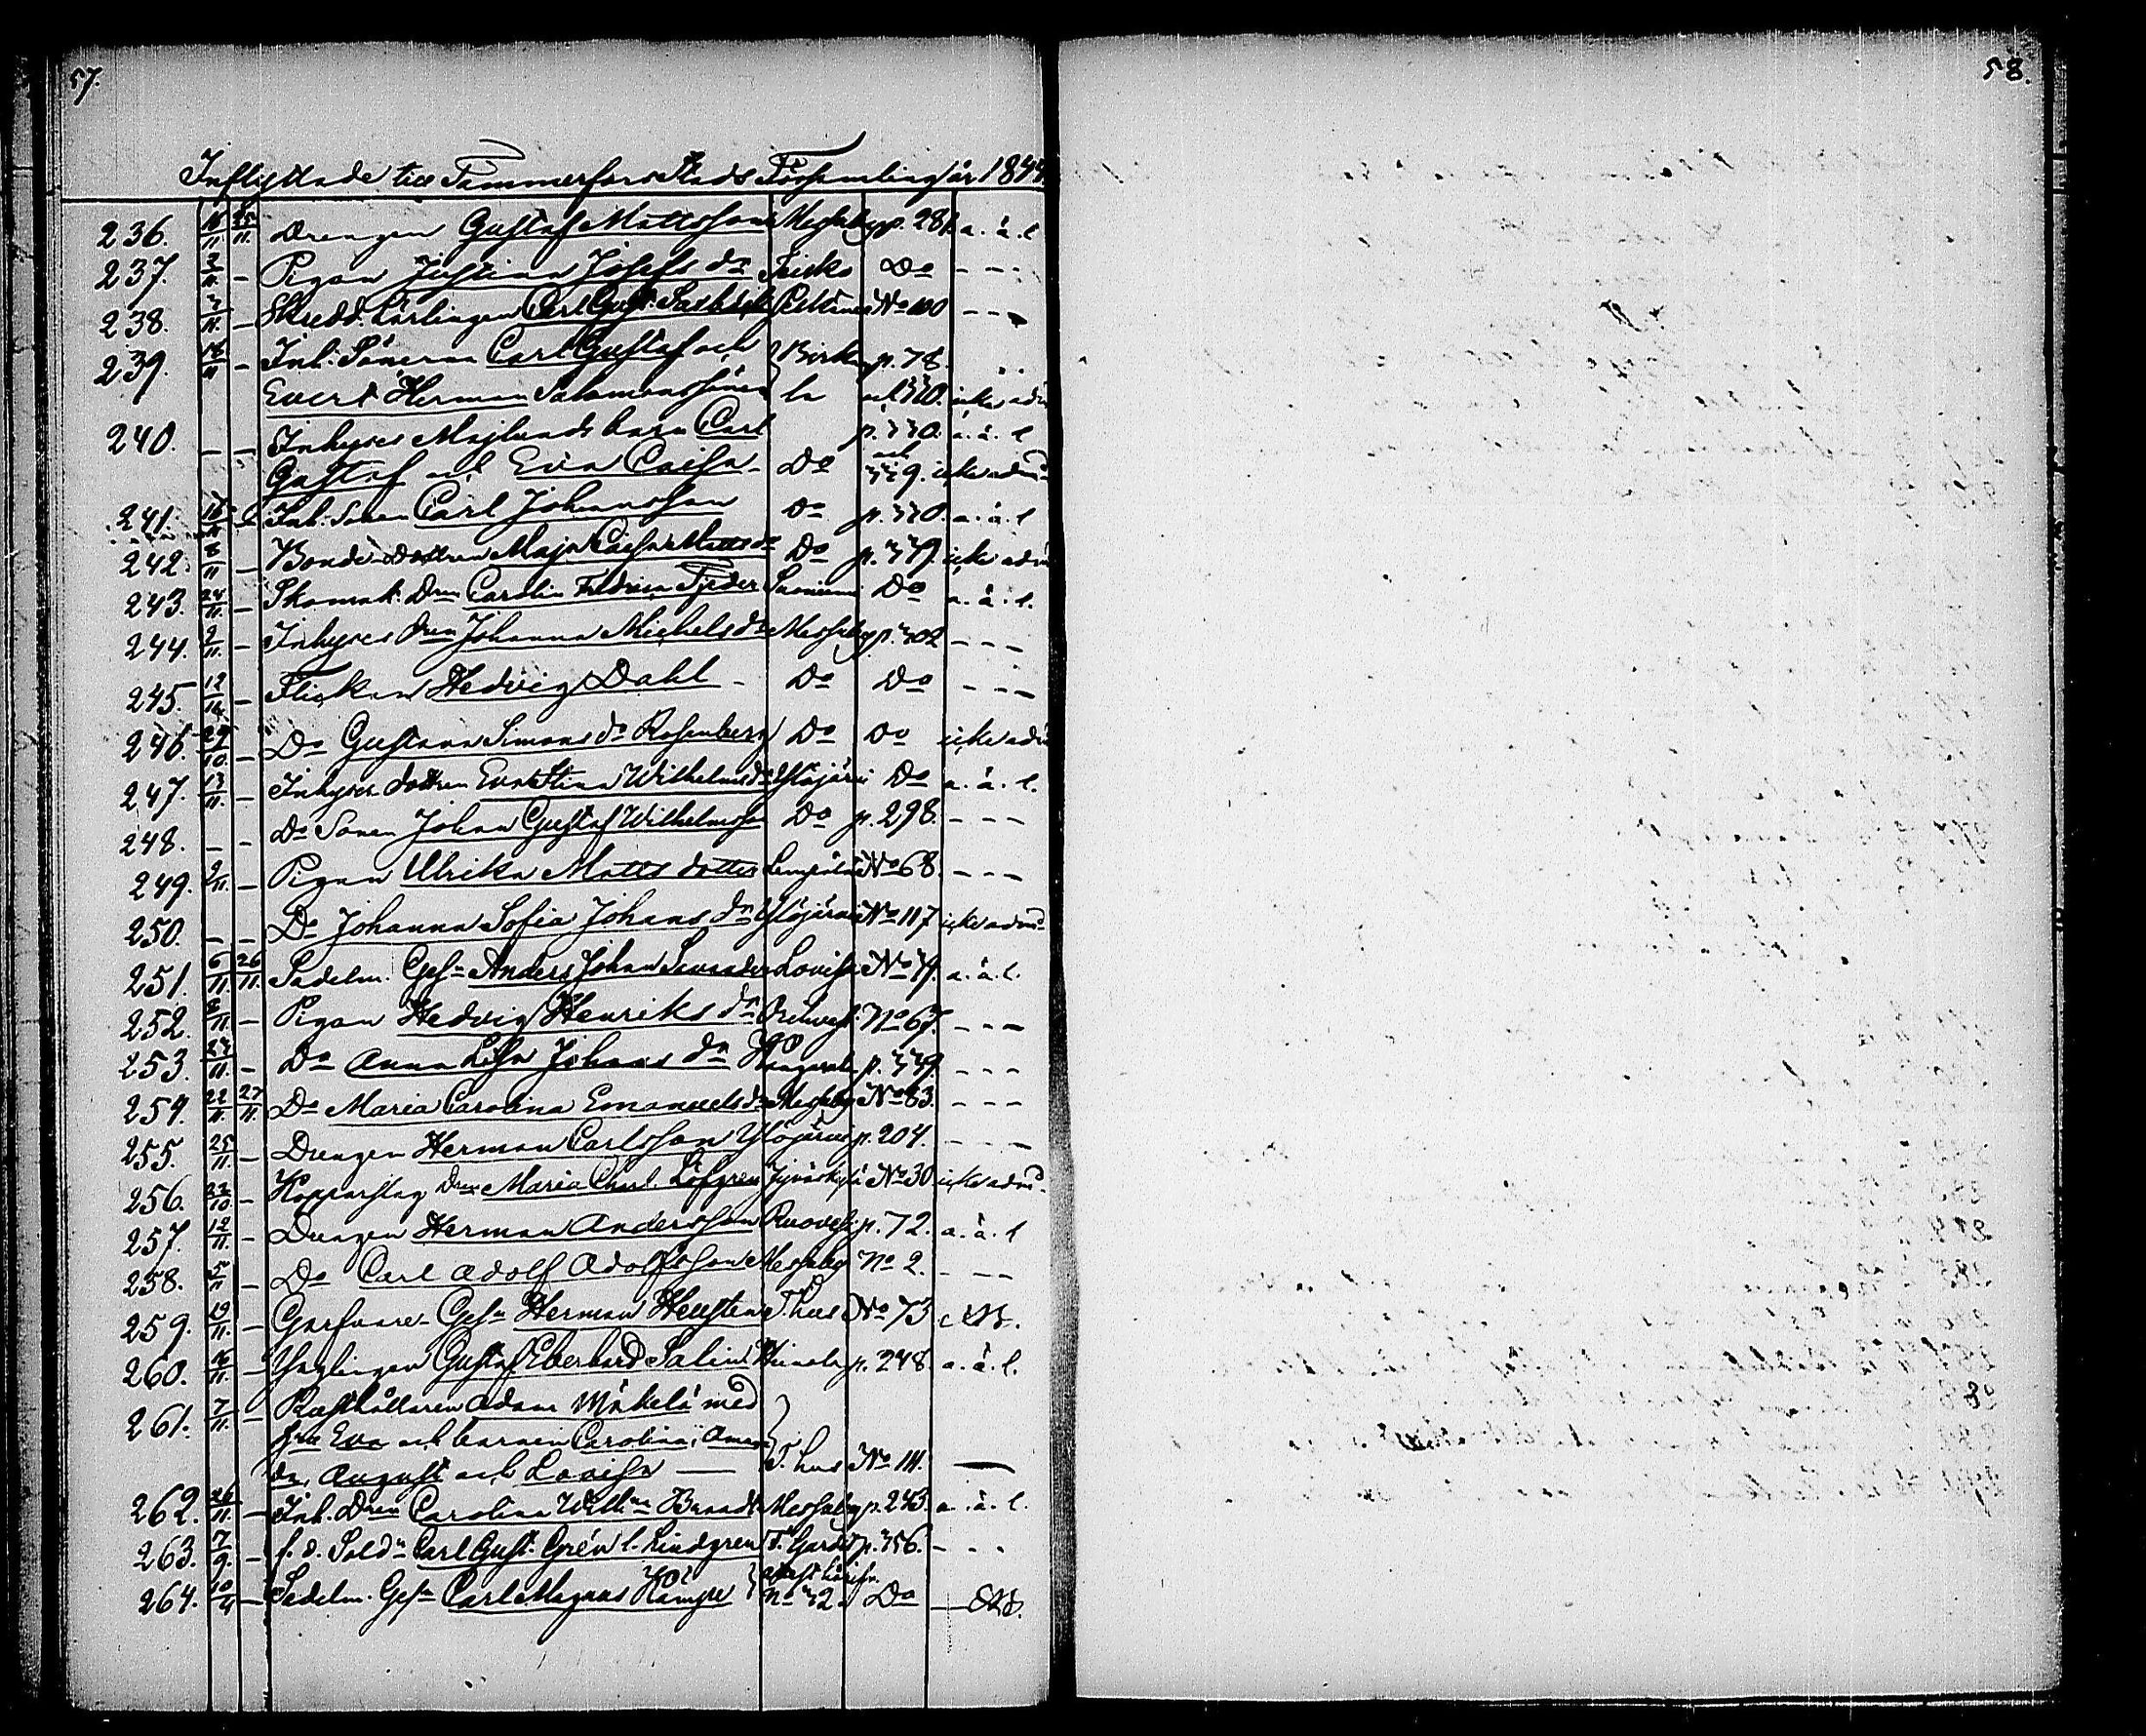 57.
58.
Inflyttade till Tammerfors Stads Församling år 184
236. 16/11. 25/11. Drengen Gustaf Mattsson Messuby p. 281. a. ä. l
237. 2/11. - Pigan Justina Josefs dr Do - - -
238. 3/11. - Skredd. Lärlingen Carl Gust. No 100 - - -
239. 18/11 - Inh. Sönerna Carl Gustaf och } Birka p. 78.
Evert Herman Salomonssöner la och 330. icke adm
240. - - Inhyses Majlunds barn Carl p. 330. a. ä. l
Gustaf och Eva Caisa - Do och 339. icke adm
241. 16/11 Inh. Sonen Carl Johansson Do p. 330. a. ä. l
242. 8/11 - Bonde Dottren Maja Caisa Matts dr Do p. 339. icke adm
243. 24/11. - Skomak. Dren Carolin Fredrica Tjeder Do a. ä. l.
244. 2/11. - Inhyses dren Johanna Michels dr Messuby p. 302 - - -
245. 12/ - Flickan Hedvig Dahl - Do Do - - -
246. 29/10. - Do Gustava Simons dr Rosenberg Do Do icke adm
247. 13/11. - Inhyses dottren Eva Stina Wilhelms dr Ylöjärvi Do a. ä. l.
248. - - Do Sonen Johan Gustaf Wilhelmsson Do p. 298. - - -
249. 2/11. - Pigan Ulrika Matts dotter Lempälä No 68. - - -
250. - - Do Johanna Sofia Johans dr Ylöjärvi No 117 icke adm
251. 6/11. 26/11. Sadelm. Gesn Anders Johan Lovisa No 74. a. ä. l.
252. 8/11. - Pigan Hedvig Henriks dr No 67. - - -
253. 23/11. - Do Anna Lisa Johans dr p. 339 - - -
254. 22/11. 27/11. Do Maria Carolina Emanuels dr Messuby No 83. - - -
255. 25/11. - Drengen Herman Carlsson Ylöjärvi p. 204. - - -
256. 22/10. - Kopparslag. Dren Maria Charl. Löfgren Jyväskylä No 30 icke adm.
257. 12/11. - Drengen Herman Andersson Ruovesi p. 72. a. ä. l
258. 5/11 - Do Carl Adolf Adolfsson Messuby No 2. - - -
259. 19/11. - Garfvare Gesn Herman Hellsten T. hus No 73
260. 16/11. - Ynglingen Gustaf Eberhard Salin p. 248 a. ä. l.
261. 7/11. - Rusthållaren Adam Mäkelä med }
hu Eva och barnen Carolina, Aman
da, August och Lovisa — T. hus No 111. —
262. 26/11. - Inh. Dren Carolina Wilhna Brandt Messuby p. 243. a. ä. l.
263. 7/9. - f. d. Soldn Carl Gust. Grén l. Lindgren F. Gardet p. 356. - - -
264. 10/4 - Sadelm. Gesn Carl Magnus Kämpe } No 32. Do —